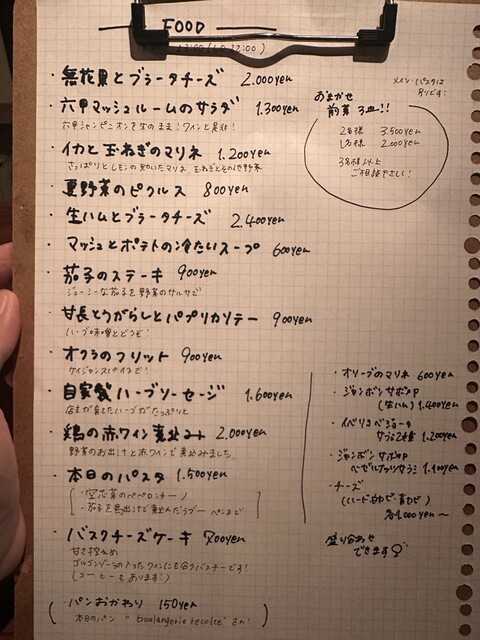 FOOD
・無花果とブラータチーズ 2.000yen
・六甲マッシュルームのサラダ 1.300yen
六甲シャンピニオンを生のまま！ワインと是非！
・イカと玉ねぎのマリネ 1.200yen
さっぱりとレモンの効いたマリネ 玉ねぎとその他野菜
・夏野菜のピクルス 800yen
・生ハムとブラータチーズ 2.400yen
・マッシュとポテトの冷たいスープ 600yen
・茄子のステーキ 900yen
ジューシーな茄子を野菜のサルサで
・甘長とうがらしとパプリカソテー 900yen
ハーブ味噌とどうぞ！
・オクラのフリット 900yen
ケイジャンスパイスで！
・自家製ハーブソーセージ 1.600yen
店主が育てたハーブがたっぷりと
・鶏の赤ワイン煮込み 2.000yen
野菜のお出汁と赤ワインで煮込みました。
・本日のパスタ 1.500yen
のペペロンチーノ
・茄子を
・バスクチーズケーキ 700yen
甘さ控えめ
ゴルゴンゾーラの入ったワインにも合うバスチーです！
（コーヒーもあります！）
（・パンおかわり 150yen）
本日のパン "boulangerie récolte" さん！
メイン・パスタは
別です！
おまかせ
前菜3皿！！
2名様 3.500yen
1名様 2.000yen
3名様以上
ご相談下さい！
・オリーブのマリネ 600yen
・ジャンボンサボア
（生ハム）1.400yen
・イベリコベジョータ
サラミ2種 1.200yen
・ジャンボンサボア
ヘーゼルナッツサラミ
・チーズ
（ハード・白カビ・青カビ）
各1.000yen〜
盛り合わせ
できます